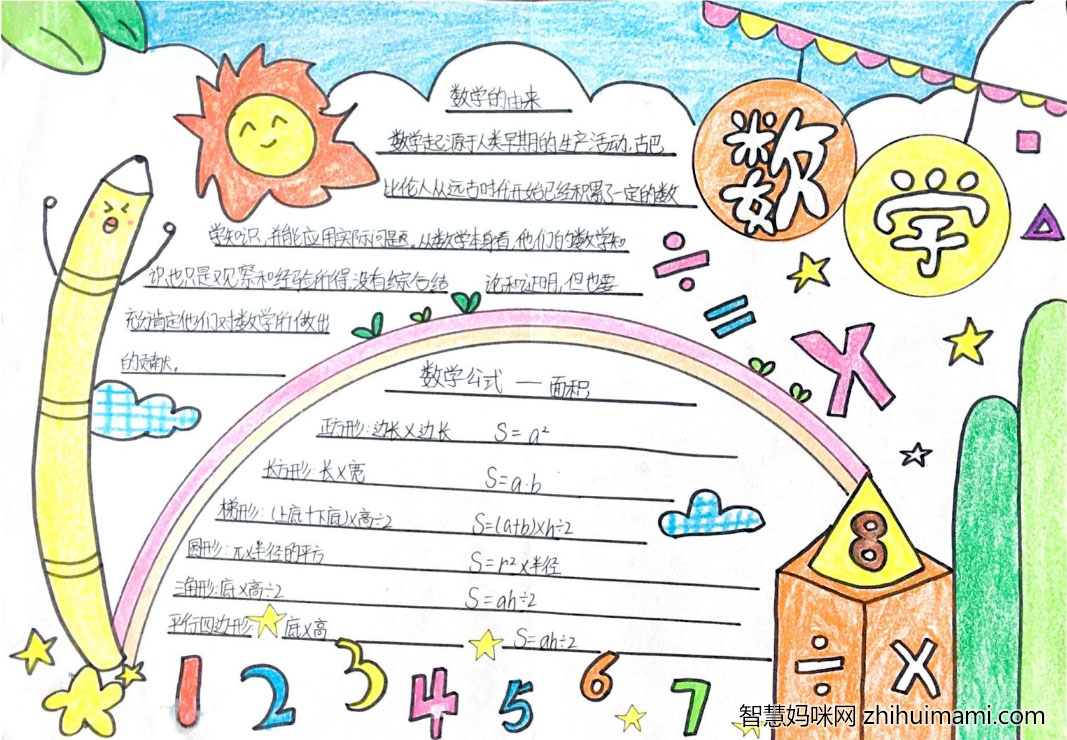 数学的由来
数学起源于人类早期的生产活动,古巴
比伦人从远古时代开始已经积累了一定的数
学知识,并能应用实际问题。从数学本身看,他们的数学知
识也只是观察和经验所得,没有综合结 论和证明,但也要
充分肯定他们对数学所做出
的贡献。
数学
÷
=
×
数学公式 — 面积
正方形:边长×边长 S=a²
长方形:长×宽 S=a·b
梯形:(上底+下底)×高÷2 S=(a+b)×h÷2
圆形:π×半径的平方 S=r²×半径
三角形:底×高÷2 S=ah÷2
平行四边形: 底×高 S=ah÷2
8
÷ ×
1 2 3 4 5 6 7
智慧妈咪网 zhihuimami.com